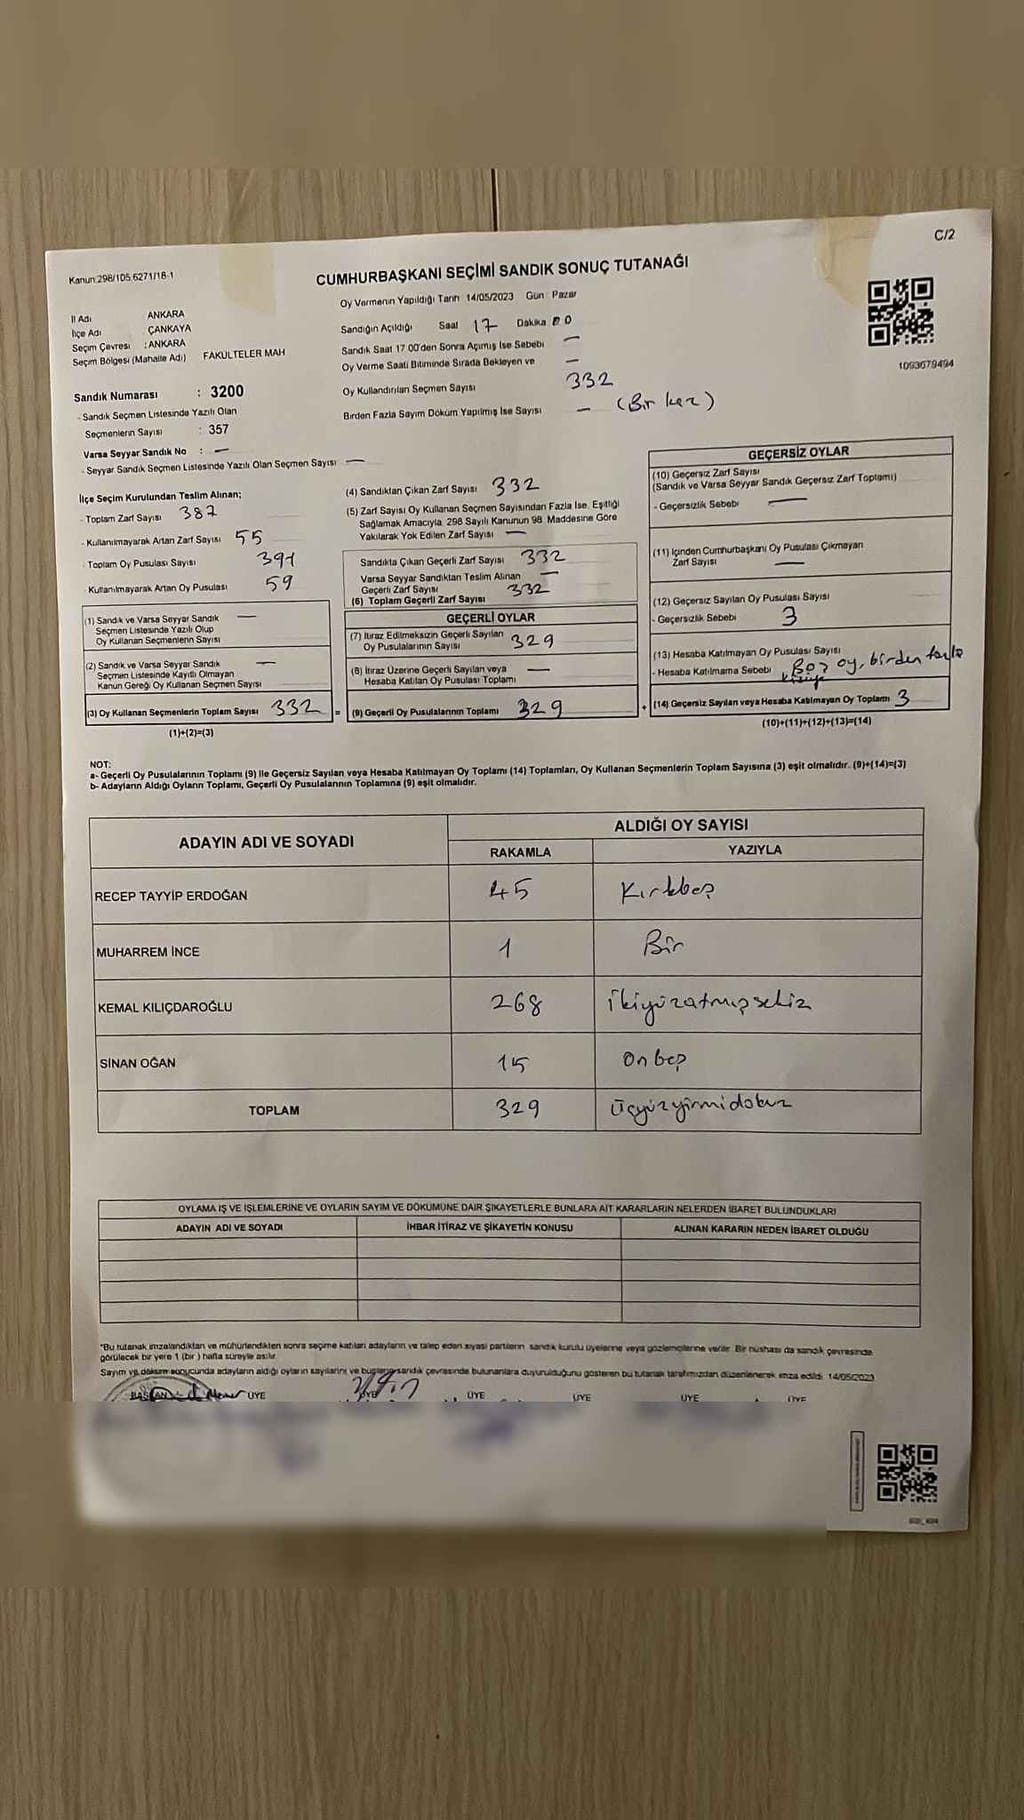 C/2
Kanun 298/105 6271/18-1
CUMHURBAŞKANI SEÇİMİ SANDIK SONUÇ TUTANAĞI
Oy Vermenin Yapıldığı Tarih 14/05/2023 Gün : Pazar
1093679494
İl Adı ANKARA
İlçe Adı ÇANKAYA
Seçim Çevresi : ANKARA
Seçim Bölgesi (Mahalle Adı) FAKÜLTELER MAH
Sandığın Açıldığı Saat 17 Dakika 00
Sandık Saat 17 00'den Sonra Açımış İse Sebebi —
Oy Verme Saati Bitiminde Sırada Bekleyen ve —
Oy Kullandırılan Seçmen Sayısı 332
Birden Fazla Sayım Döküm Yapılmış İse Sayısı — (Bir kez)
Sandık Numarası : 3200
- Sandık Seçmen Listesinde Yazılı Olan
Seçmenlerin Sayısı : 357
Varsa Seyyar Sandık No : —
- Seyyar Sandık Seçmen Listesinde Yazılı Olan Seçmen Sayısı —
İlçe Seçim Kurulundan Teslim Alınan;
- Toplam Zarf Sayısı 387
- Kullanılmayarak Artan Zarf Sayısı 55
Toplam Oy Pusulası Sayısı 391
- Kullanılmayarak Artan Oy Pusulası 59
(1) Sandık ve Varsa Seyyar Sandık —
Seçmen Listesinde Yazılı Olup
Oy Kullanan Seçmenlerin Sayısı
(2) Sandık ve Varsa Seyyar Sandık —
Seçmen Listesinde Kayıtlı Olmayan
Kanun Gereği Oy Kullanan Seçmen Sayısı
(3) Oy Kullanan Seçmenlerin Toplam Sayısı 332 =
(1)+(2)=(3)
(4) Sandıktan Çıkan Zarf Sayısı 332
(5) Zarf Sayısı Oy Kullanan Seçmen Sayısından Fazla İse, Eşitliği
Sağlamak Amacıyla, 298 Sayılı Kanunun 98. Maddesine Göre
Yakılarak Yok Edilen Zarf Sayısı —
Sandıkta Çıkan Geçerli Zarf Sayısı 332
Varsa Seyyar Sandıktan Teslim Alınan —
Geçerli Zarf Sayısı
(6) Toplam Geçerli Zarf Sayısı 332
GEÇERLİ OYLAR
(7) İtiraz Edilmeksizin Geçerli Sayılan
Oy Pusulalarının Sayısı 329
(8) İtiraz Üzerine Geçerli Sayılan veya —
Hesaba Katılan Oy Pusulası Toplamı
(9) Geçerli Oy Pusulalarının Toplamı 329 +
GEÇERSİZ OYLAR
(10) Geçersiz Zarf Sayısı
(Sandık ve Varsa Seyyar Sandık Geçersiz Zarf Toplamı)
- Geçersizlik Sebebi —
(11) İçinden Cumhurbaşkanı Oy Pusulası Çıkmayan
Zarf Sayısı —
(12) Geçersiz Sayılan Oy Pusulası Sayısı
- Geçersizlik Sebebi 3
(13) Hesaba Katılmayan Oy Pusulası Sayısı
- Hesaba Katılmama Sebebi Boş oy, birden fazla
kişiye
(14) Geçersiz Sayılan veya Hesaba Katılmayan Oy Toplamı 3
(10)+(11)+(12)+(13)=(14)
NOT:
a- Geçerli Oy Pusulalarının Toplamı (9) ile Geçersiz Sayılan veya Hesaba Katılmayan Oy Toplamı (14) Toplamları, Oy Kullanan Seçmenlerin Toplam Sayısına (3) eşit olmalıdır. (9)+(14)=(3)
b- Adayların Aldığı Oyların Toplamı, Geçerli Oy Pusulalarının Toplamına (9) eşit olmalıdır.
ADAYIN ADI VE SOYADI ALDIĞI OY SAYISI
RAKAMLA YAZIYLA
RECEP TAYYİP ERDOĞAN 45 Kırkbeş
MUHARREM İNCE 1 Bir
KEMAL KILIÇDAROĞLU 268 İkiyüzatmışsekiz
SİNAN OĞAN 15 Onbeş
TOPLAM 329 Üçyüzyirmidokuz
OYLAMA İŞ VE İŞLEMLERİNE VE OYLARIN SAYIM VE DÖKÜMÜNE DAİR ŞİKAYETLERLE BUNLARA AİT KARARLARIN NELERDEN İBARET BULUNDUKLARI
ADAYIN ADI VE SOYADI İHBAR İTİRAZ VE ŞİKAYETİN KONUSU ALINAN KARARIN NEDEN İBARET OLDUĞU
*Bu tutanak imzalandıktan ve mühürlendikten sonra seçime katılan adayların ve talep eden siyasi partilerin sandık kurulu üyelerine veya gözlemcilerine verilir. Bir nüshası da sandık çevresinde
görülecek bir yere 1 (bir ) hafta süreyle asılır.
Sayım ve döküm sonucunda adayların aldığı oyların sayılarını ve bunların sandık çevresinde bulunanlara duyurulduğunu gösteren bu tutanak tarafımızdan düzenlenerek imza edildi. 14/05/2023
BAŞKAN ÜYE ÜYE ÜYE ÜYE ÜYE ÜYE